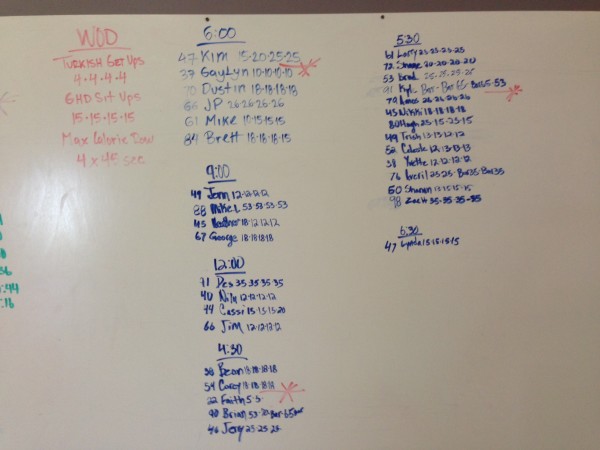 WOD
TURKISH GET UPS
4·4·4·4
GHD SIT UPS
15·15·15·15
MAX CALORIE ROW
4 x 45 SEC
:44
:16
6:00
47 Kim 15·20·25·25
37 GayLyn 10·10·10·10
70 Dustin 18·18·18·18
66 JP 26·26·26·26
61 Mike 10·15·15·15
84 Brett 18·18·18·15
9:00
49 Jenn 12·12·12·12
88 Mike L 53·53·53·53
45 Heather 18·12·12·12
67 George 18·18·18·18
12:00
71 Des 35·35·35·35
40 12·12·12·12
44 Cassi 15·15·15·20
66 Jim 12·12·12·12
4:30
38 Bean 18·18·18·18
54 Corey 18·18·18·18
22 Faith 5·5·
90 Brian 53·70
46 Jeny 25·25·25
5:30
61 Larry 25·25·25·25
72 20·20·20·20
53 Brad 25·25
91 Kyle Bar·Bar 65·
79 26·26·26·26
45 Nikki 18·18·18·18
80 Hugh 25·15·25·15
49 Trish 13·13·12·12
52 Celeste 12·13·13·13
38 Yvette 12·12·12·12
76 Averil 25·25·Bar35·Bar35
50 Shanan 15·15·15
98 Zack 35·35·35·35
6:30
47 Lynda 15·15·15·15